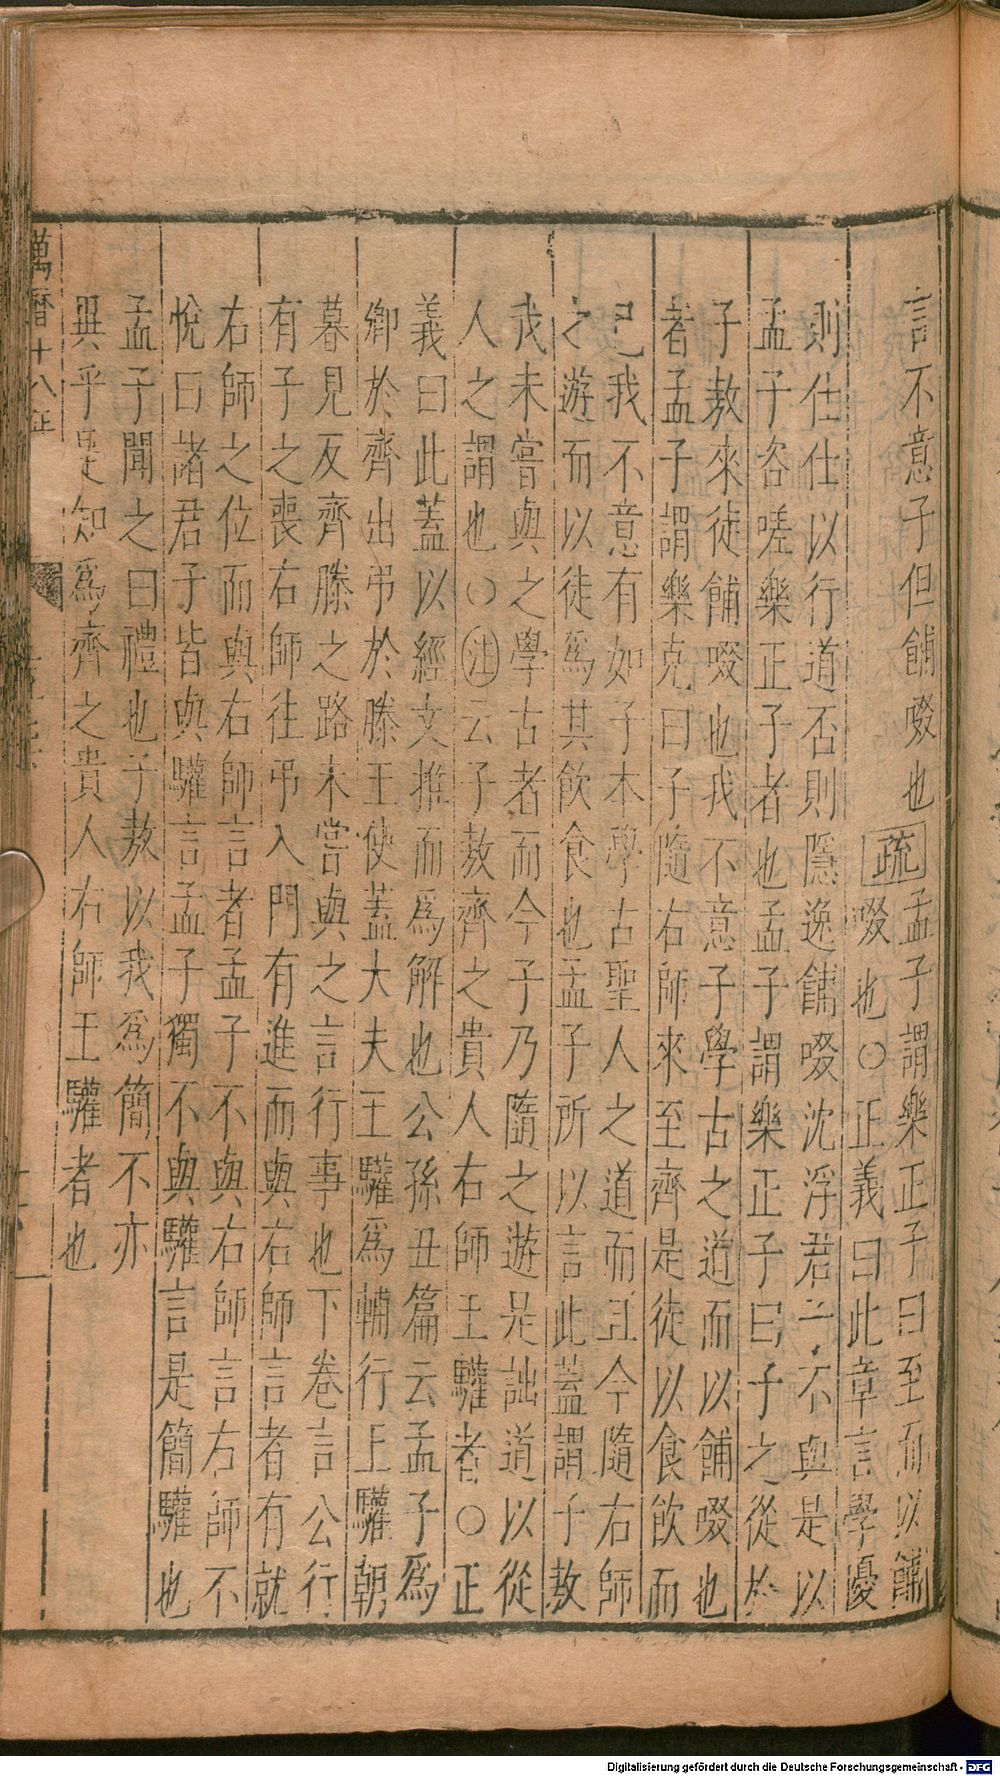 言不意子但餔啜也疏孟子謂樂正子曰至而以餔
啜也○正義曰此章言學優
則仕仕以行道否則隱逸餔啜沈浮君子不與是以
孟子咨嗟樂正子者也孟子謂樂正子曰子之從於
子敖來徒餔啜也我不意子學古之道而以餔啜也
者孟子謂樂克曰子隨右師來至齊是徒以食飲而
已我不意有如子本學古聖人之道而且今隨右師
之遊而以徒爲其飲食也孟子所以言此蓋謂子敖
我未嘗與之學古者而今子乃隨之遊是詘道以從
人之謂也○注云子敖齊之貴人右師王驩者○正
義曰此蓋以經文推而爲解也公孫丑篇云孟子爲
卿於齊出弔於滕王使蓋大夫王驩爲輔行王驩朝
暮見反齊滕之路未嘗與之言行事也下卷言公行
有子之喪右師往弔入門有進而與右師言者有就
右師之位而與右師言者孟子不與右師言右師不
悅曰諸君子皆與驩言孟子獨不與驩言是簡驩也
孟子聞之曰禮也子敖以我爲簡不亦
異乎是知爲齊之貴人右師王驩者也
萬曆十八年
Digitalisierung gefördert durch die Deutsche Forschungsgemeinschaft - DFG